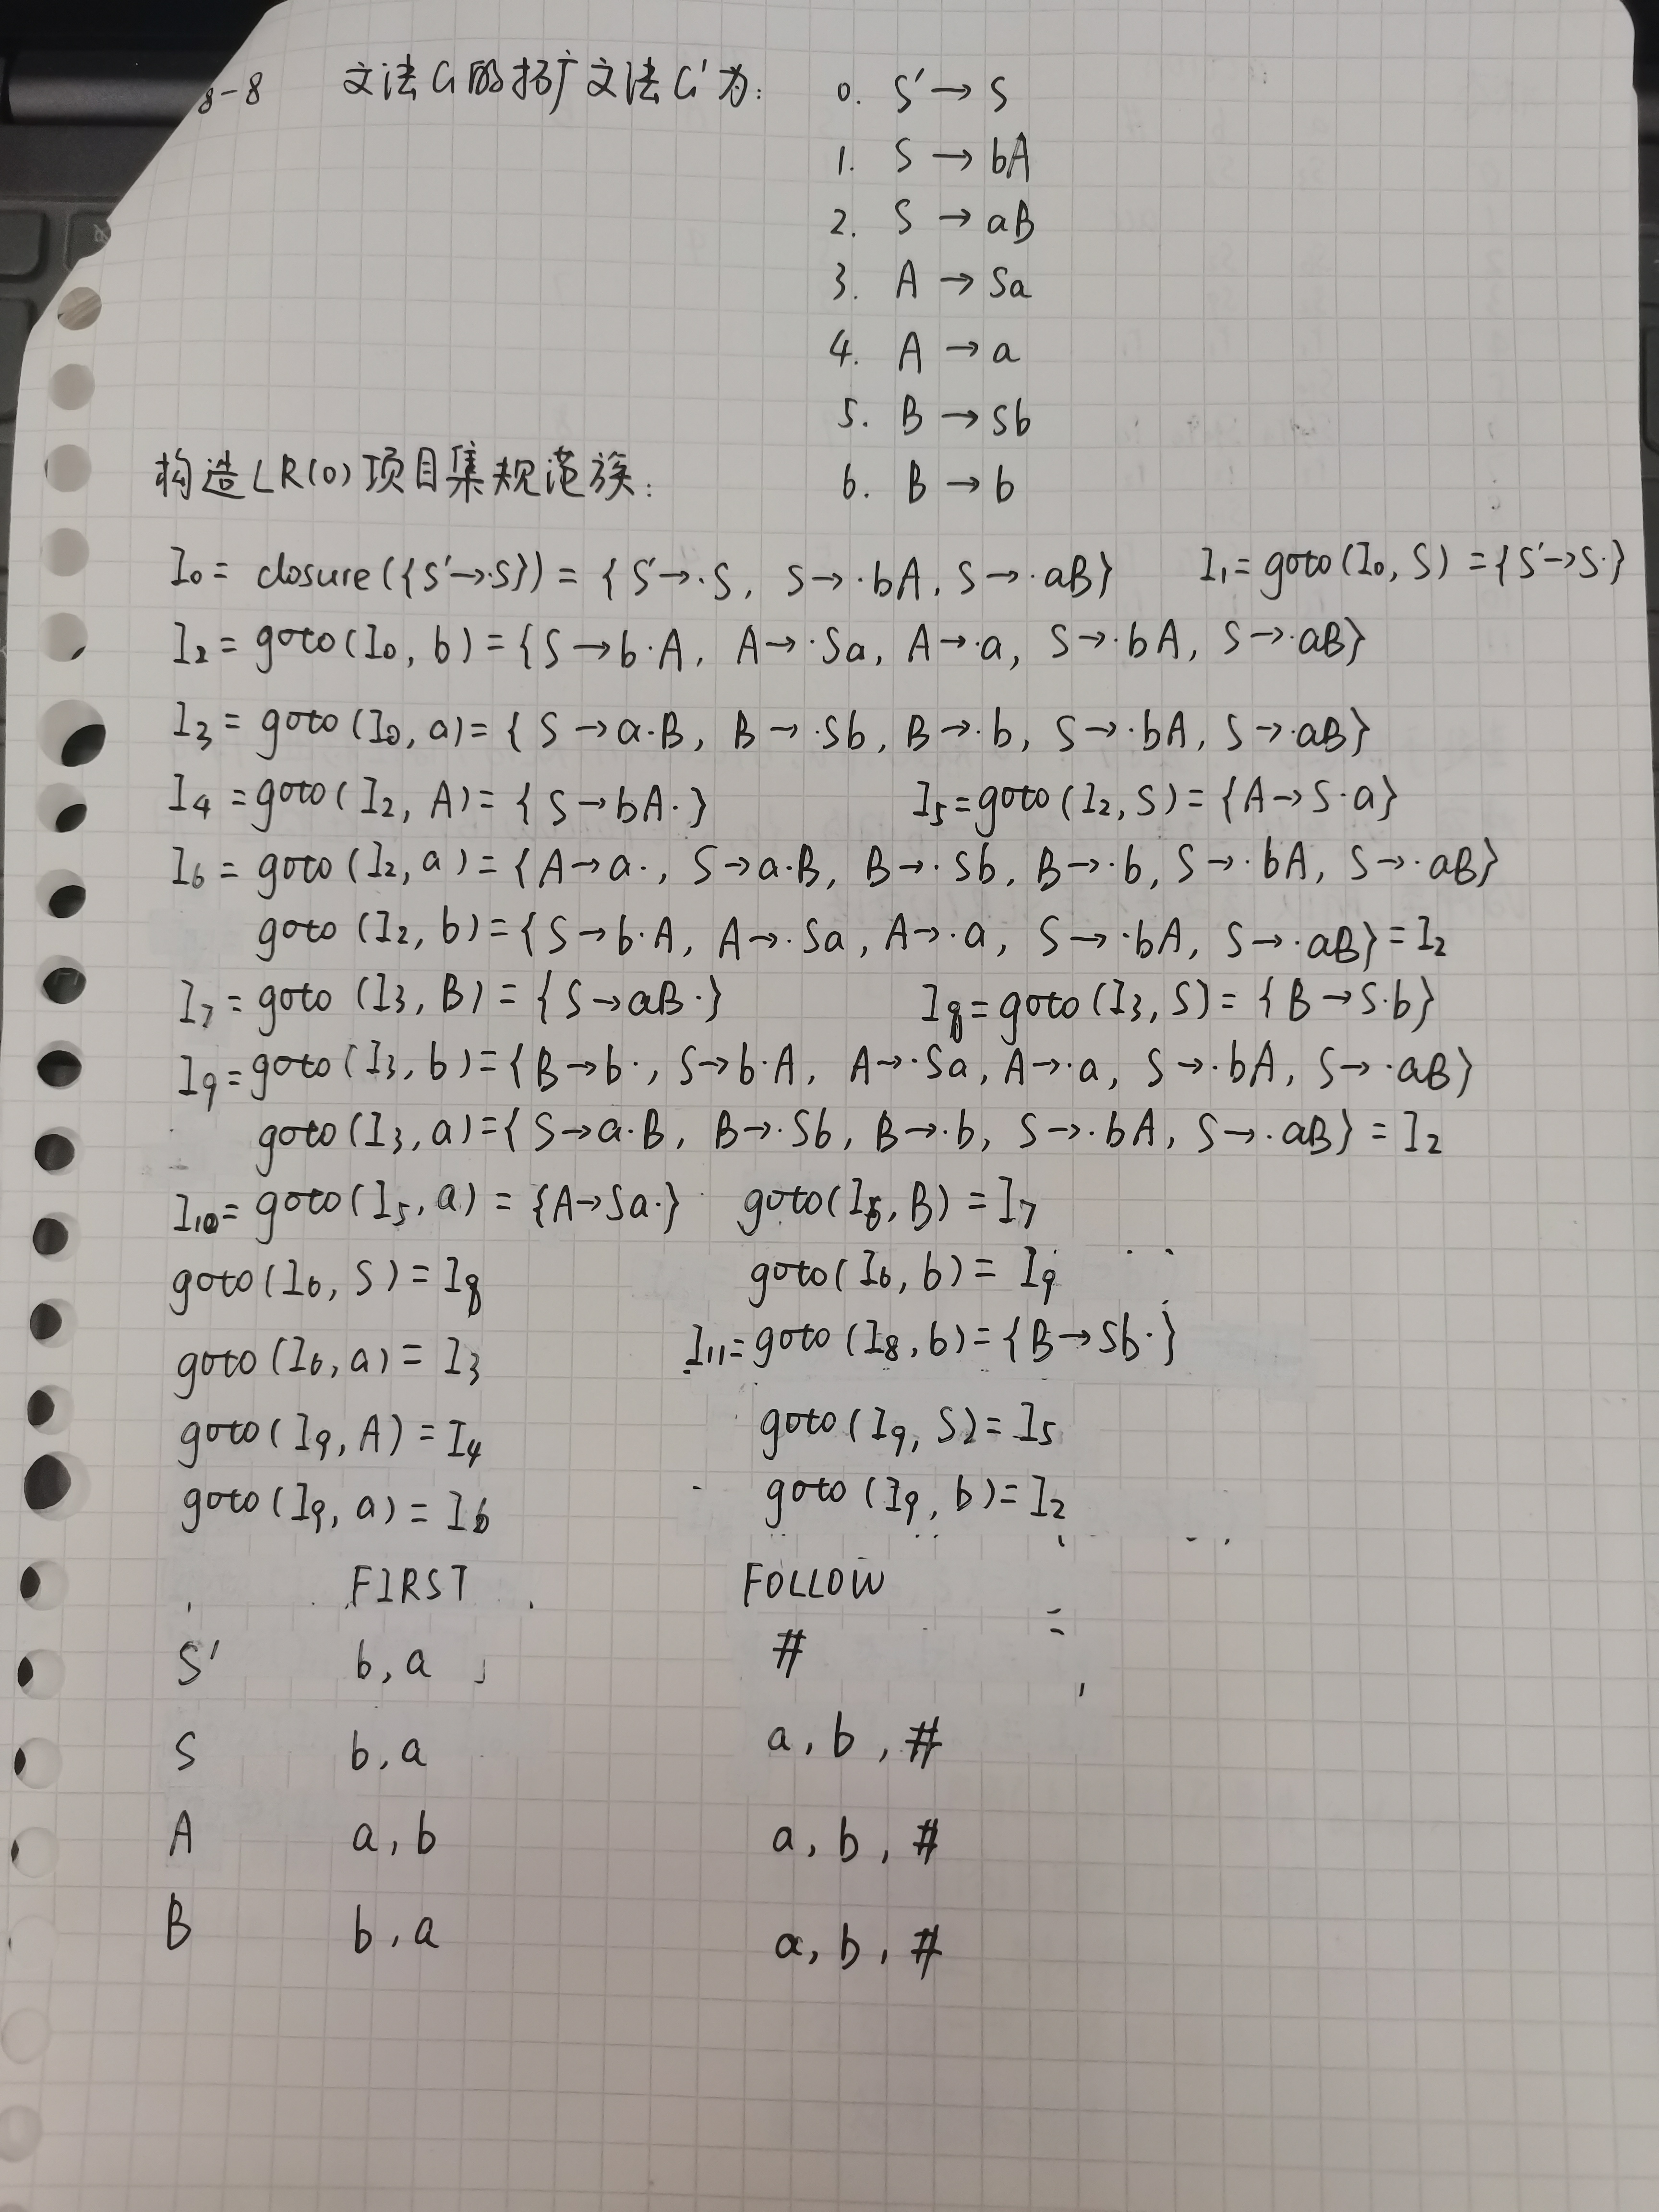 8-8 文法G的拓广文法G'为: 0. S'→S
1. S→bA
2. S→aB
3. A→Sa
4. A→a
5. B→Sb
构造LR(0)项目集规范族: 6. B→b
I₀= closure({S'→·S}) = {S'→·S, S→·bA, S→·aB} I₁=goto(I₀, S)={S'→S·}
I₂=goto(I₀, b)={S→b·A, A→·Sa, A→·a, S→·bA, S→·aB}
I₃=goto(I₀, a)={S→a·B, B→·Sb, B→·b, S→·bA, S→·aB}
I₄=goto(I₂, A)={S→bA·} I₅=goto(I₂, S)={A→S·a}
I₆=goto(I₂, a)={A→a·, S→a·B, B→·Sb, B→·b, S→·bA, S→·aB}
goto(I₂, b)={S→b·A, A→·Sa, A→·a, S→·bA, S→·aB}=I₂
I₇=goto(I₃, B)={S→aB·} I₈=goto(I₃, S)={B→S·b}
I₉=goto(I₃, b)={B→b·, S→b·A, A→·Sa, A→·a, S→·bA, S→·aB}
goto(I₃, a)={S→a·B, B→·Sb, B→·b, S→·bA, S→·aB}=I₂
I₁₀=goto(I₅, a)={A→Sa·} goto(I₆, B)=I₇
goto(I₆, S)=I₈ goto(I₆, b)=I₉
goto(I₆, a)=I₃ I₁₁=goto(I₈, b)={B→Sb·}
goto(I₉, A)=I₄ goto(I₉, S)=I₅
goto(I₉, a)=I₆ goto(I₉, b)=I₂
FIRST FOLLOW
S' b, a #
S b, a a, b, #
A a, b a, b, #
B b, a a, b, #